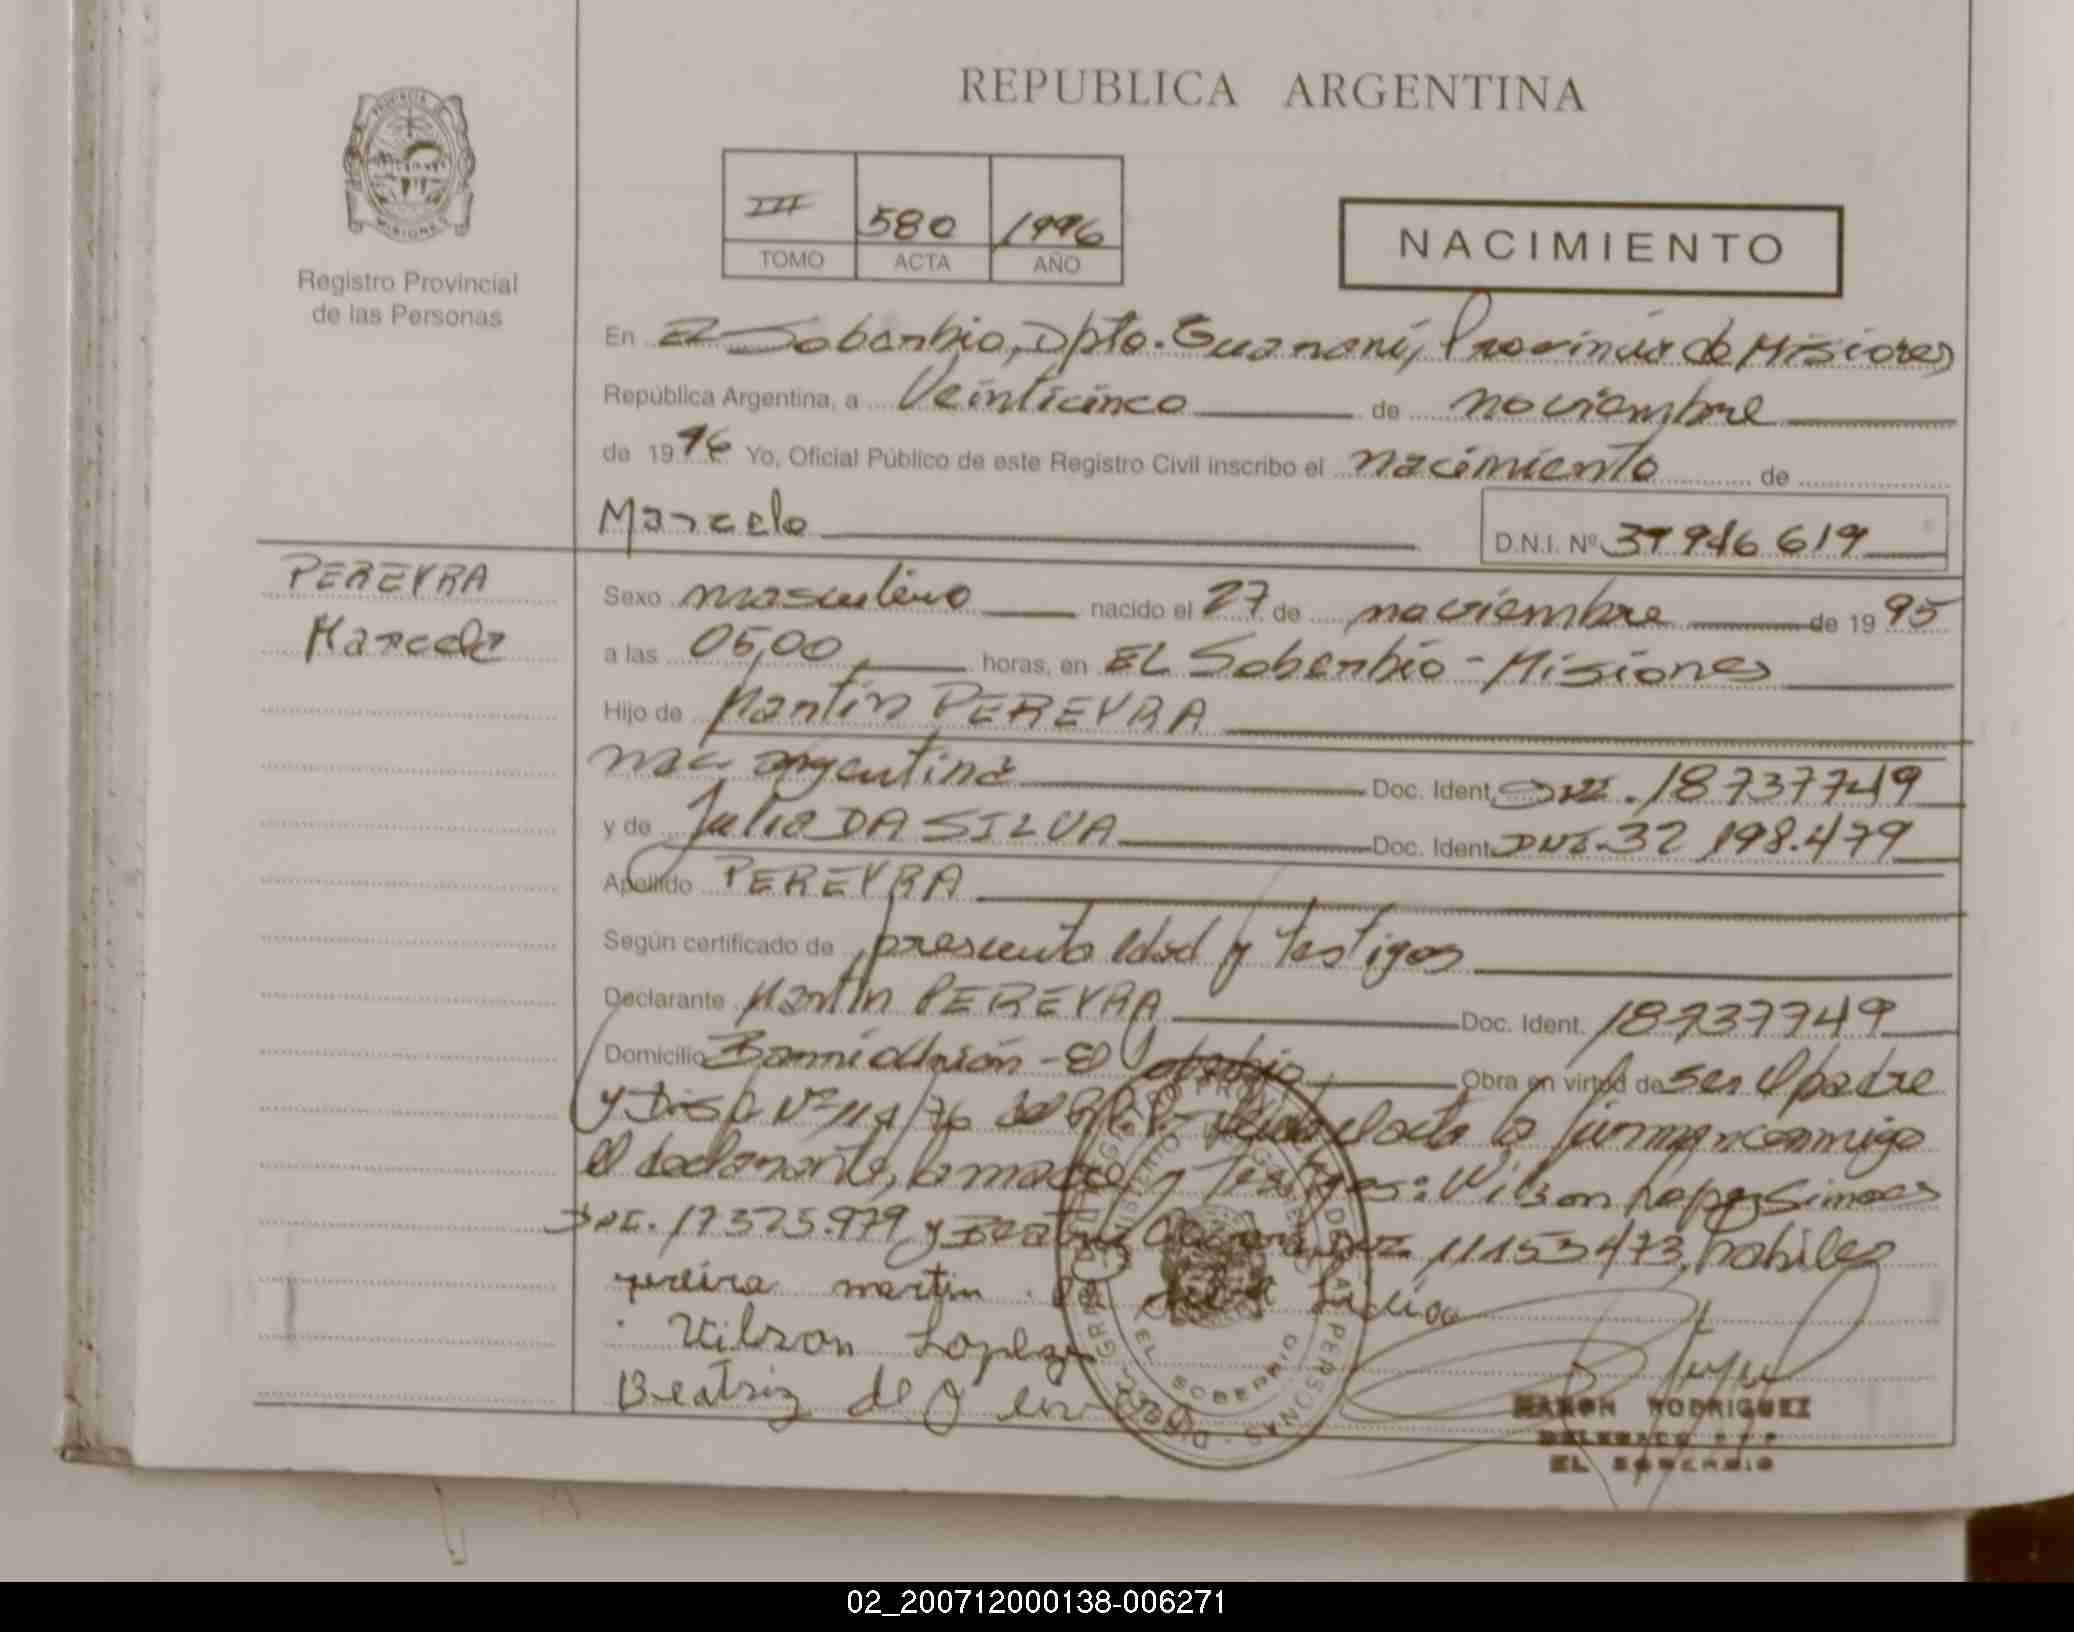 REPUBLICA ARGENTINA
PROVINCIA DE MISIONES
Registro Provincial
de las Personas
III 580 1996
TOMO ACTA AÑO
NACIMIENTO
En El Soberbio, Dpto. Guaraní, Provincia de Misiones
República Argentina, a Veinticinco de noviembre
de 1996 Yo, Oficial Público de este Registro Civil inscribo el nacimiento de
Marcelo D.N.I. Nº 39946619
PEREYRA
Marcelo
Sexo masculino nacido el 27 de noviembre de 1995
a las 05,00 horas, en EL Soberbio - Misiones
Hijo de Martín PEREYRA
nac. argentina Doc. Ident. DNI. 18737749
y de Julia DA SILVA Doc. Ident. DNI. 32 198.479
Apellido PEREYRA
Según certificado de presunta edad y testigos
Declarante Martín PEREYRA Doc. Ident. 18737749
Domicilio Barrio Unión - El Soberbio Obra en virtud de ser el padre
y Disp. Nº 114/76 del R.P.P. - Leída el acta la firman conmigo
el declarante, la madre y Testigos: Wilson Lopez Simoes
DNI. 17375.979 y Beatriz DNI 11153473, habiles
pereira martin
Wilson Lopez
Beatriz de
EL SOBERBIO
RAMON RODRIGUEZ
DELEGADO R.P.P
EL SOBERBIO
02_200712000138-006271